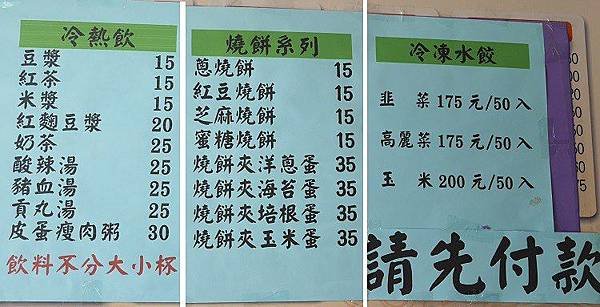 冷熱飲
豆漿 15
紅茶 15
米漿 15
紅麴豆漿 20
奶茶 25
酸辣湯 25
豬血湯 25
貢丸湯 25
皮蛋瘦肉粥 30
飲料不分大小杯
燒餅系列
蔥燒餅 15
紅豆燒餅 15
芝麻燒餅 15
蜜糖燒餅 15
燒餅夾洋蔥蛋 35
燒餅夾海苔蛋 35
燒餅夾培根蛋 35
燒餅夾玉米蛋 35
冷凍水餃
韭 菜 175 元/50 入
高麗菜 175 元/50 入
玉 米 200 元/50 入
請先付款